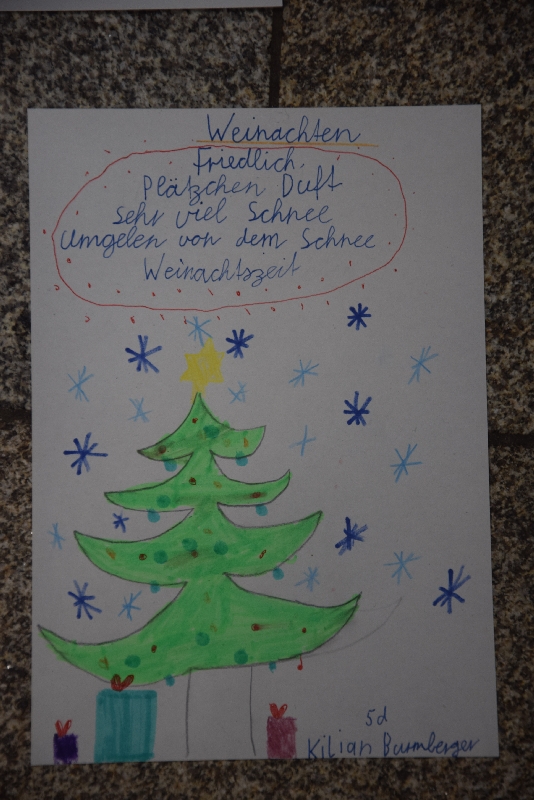 Weinachten
Friedlich
Plätzchen Duft
sehr viel Schnee
Umgelen von dem Schnee
Weinachtszeit
5d
Kilian Burmberger